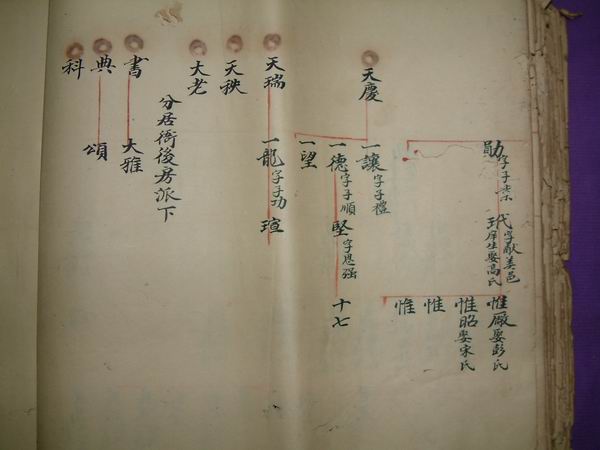 勛字子業
玳字獻美邑庠生娶高氏
惟嚴娶彭氏
惟昭娶宋氏
惟
惟
天慶
一讓字子禮
一德字子順
堅字思强
十七
一望
天瑞
一龍字子功
瑄
天秩
大老
分居衙後房派下
書
大雅
典
頌
科